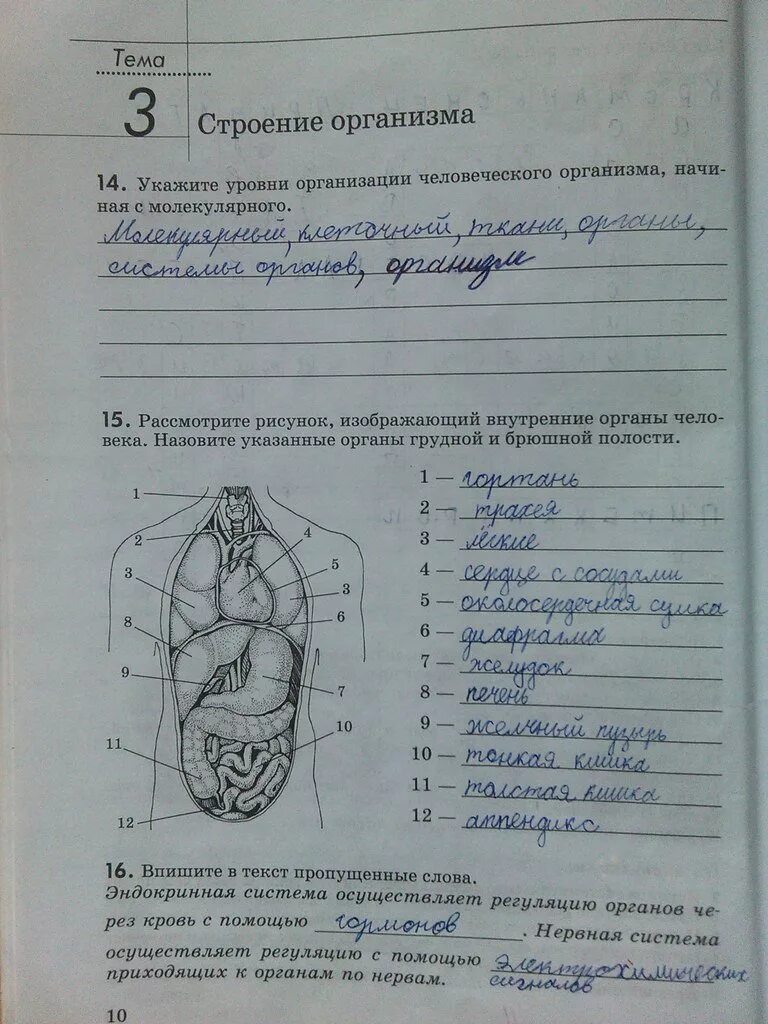 Тема
3
Строение организма
14. Укажите уровни организации человеческого организма, начи-
ная с молекулярного.
Молекулярный, клеточный, ткани, органы,
системы органов, организм
15. Рассмотрите рисунок, изображающий внутренние органы чело-
века. Назовите указанные органы грудной и брюшной полости.
1 — гортань
2 — трахея
3 — лёгкие
4 — сердце с сосудами
5 — околосердечная сумка
6 — диафрагма
7 — желудок
8 — печень
9 — желчный пузырь
10 — тонкая кишка
11 — толстая кишка
12 — аппендикс
1
2
3
4
5
3
6
8
9
7
10
11
12
16. Впишите в текст пропущенные слова.
Эндокринная система осуществляет регуляцию органов че-
рез кровь с помощью гормонов. Нервная система
осуществляет регуляцию с помощью электрохимических
сигналов
приходящих к органам по нервам.
10